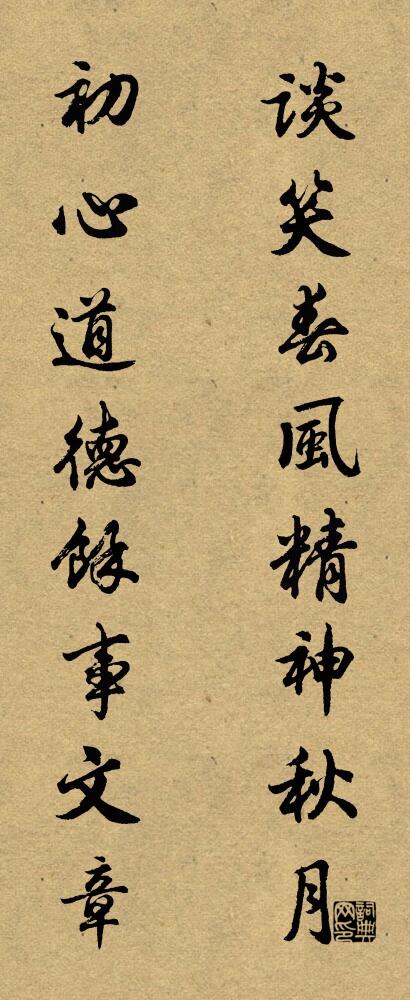 談笑春風精神秋月
初心道德餘事文章
詞典网印